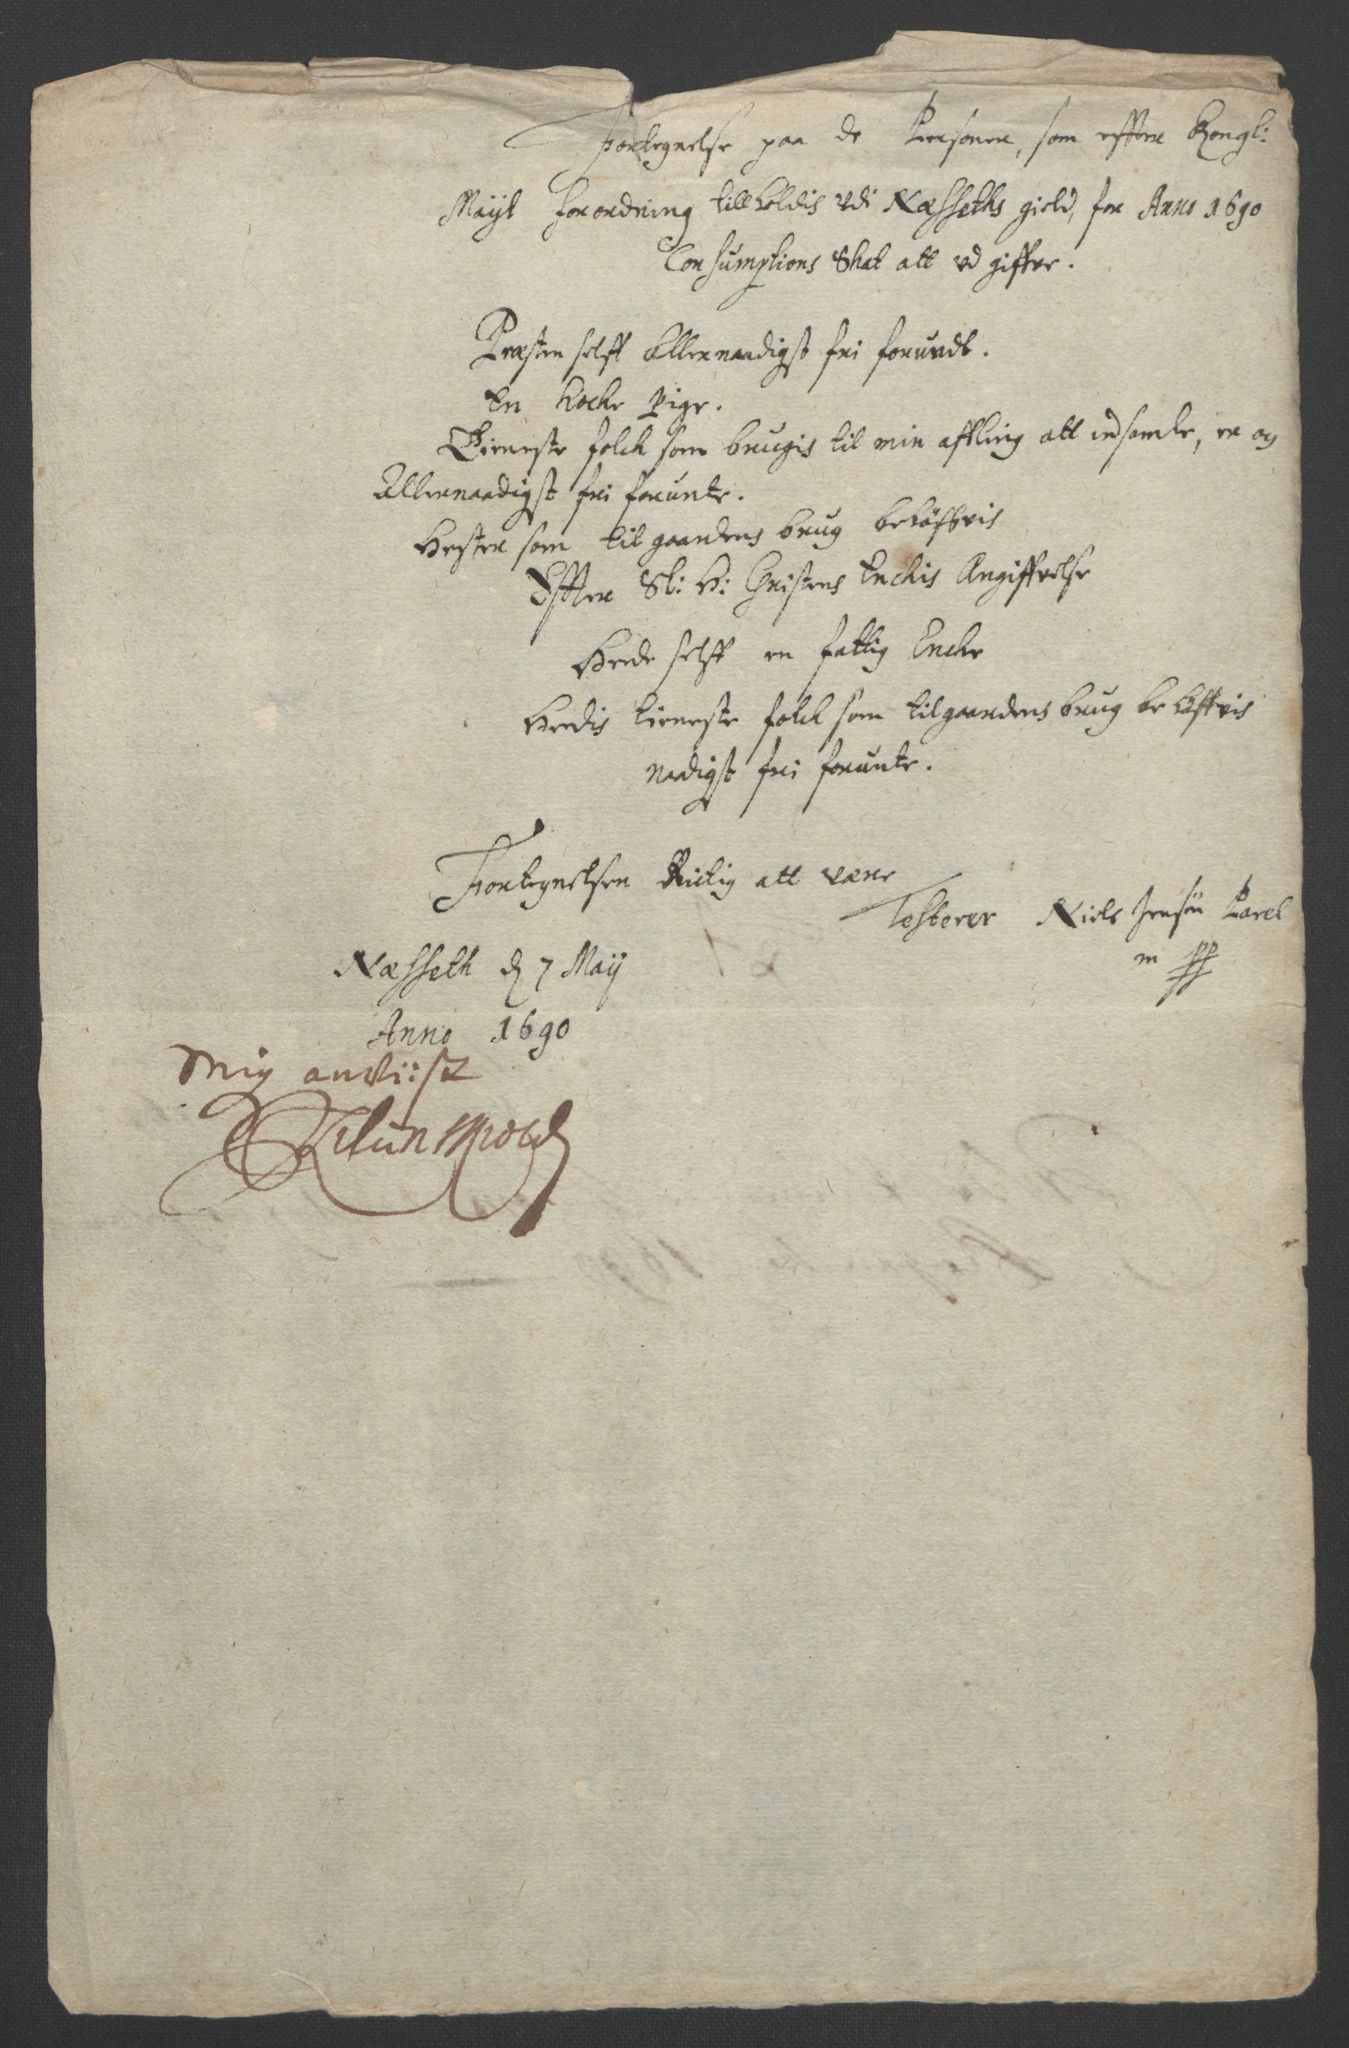 Fortegnelse paa de Personer, som efter Kongl:
Mayt forordning tillholdis udi Næsseths gield, for Anno 1690
Consumptions Skat att ud giffve.
Præsten self allernaadigst fri forundt.
En Kocke Pige.
Tieneste folck som brugis til min affling att indsamle, er og
Allernaadigst fri forunte.
Hester som til gaardens brug behøffvis
Effter Sl: H: Christens Enckis Angiffvelse
Hende self en fattig Encke
Hendis tieneste folck som til gaardens brug behøffvis
naadigst fri forunte.
Fortegnelsen Rictig att være
Testerer Niels Jensøn Parel
m pp
Næsseth d 7 Maij
Anno 1690
Mig anviist